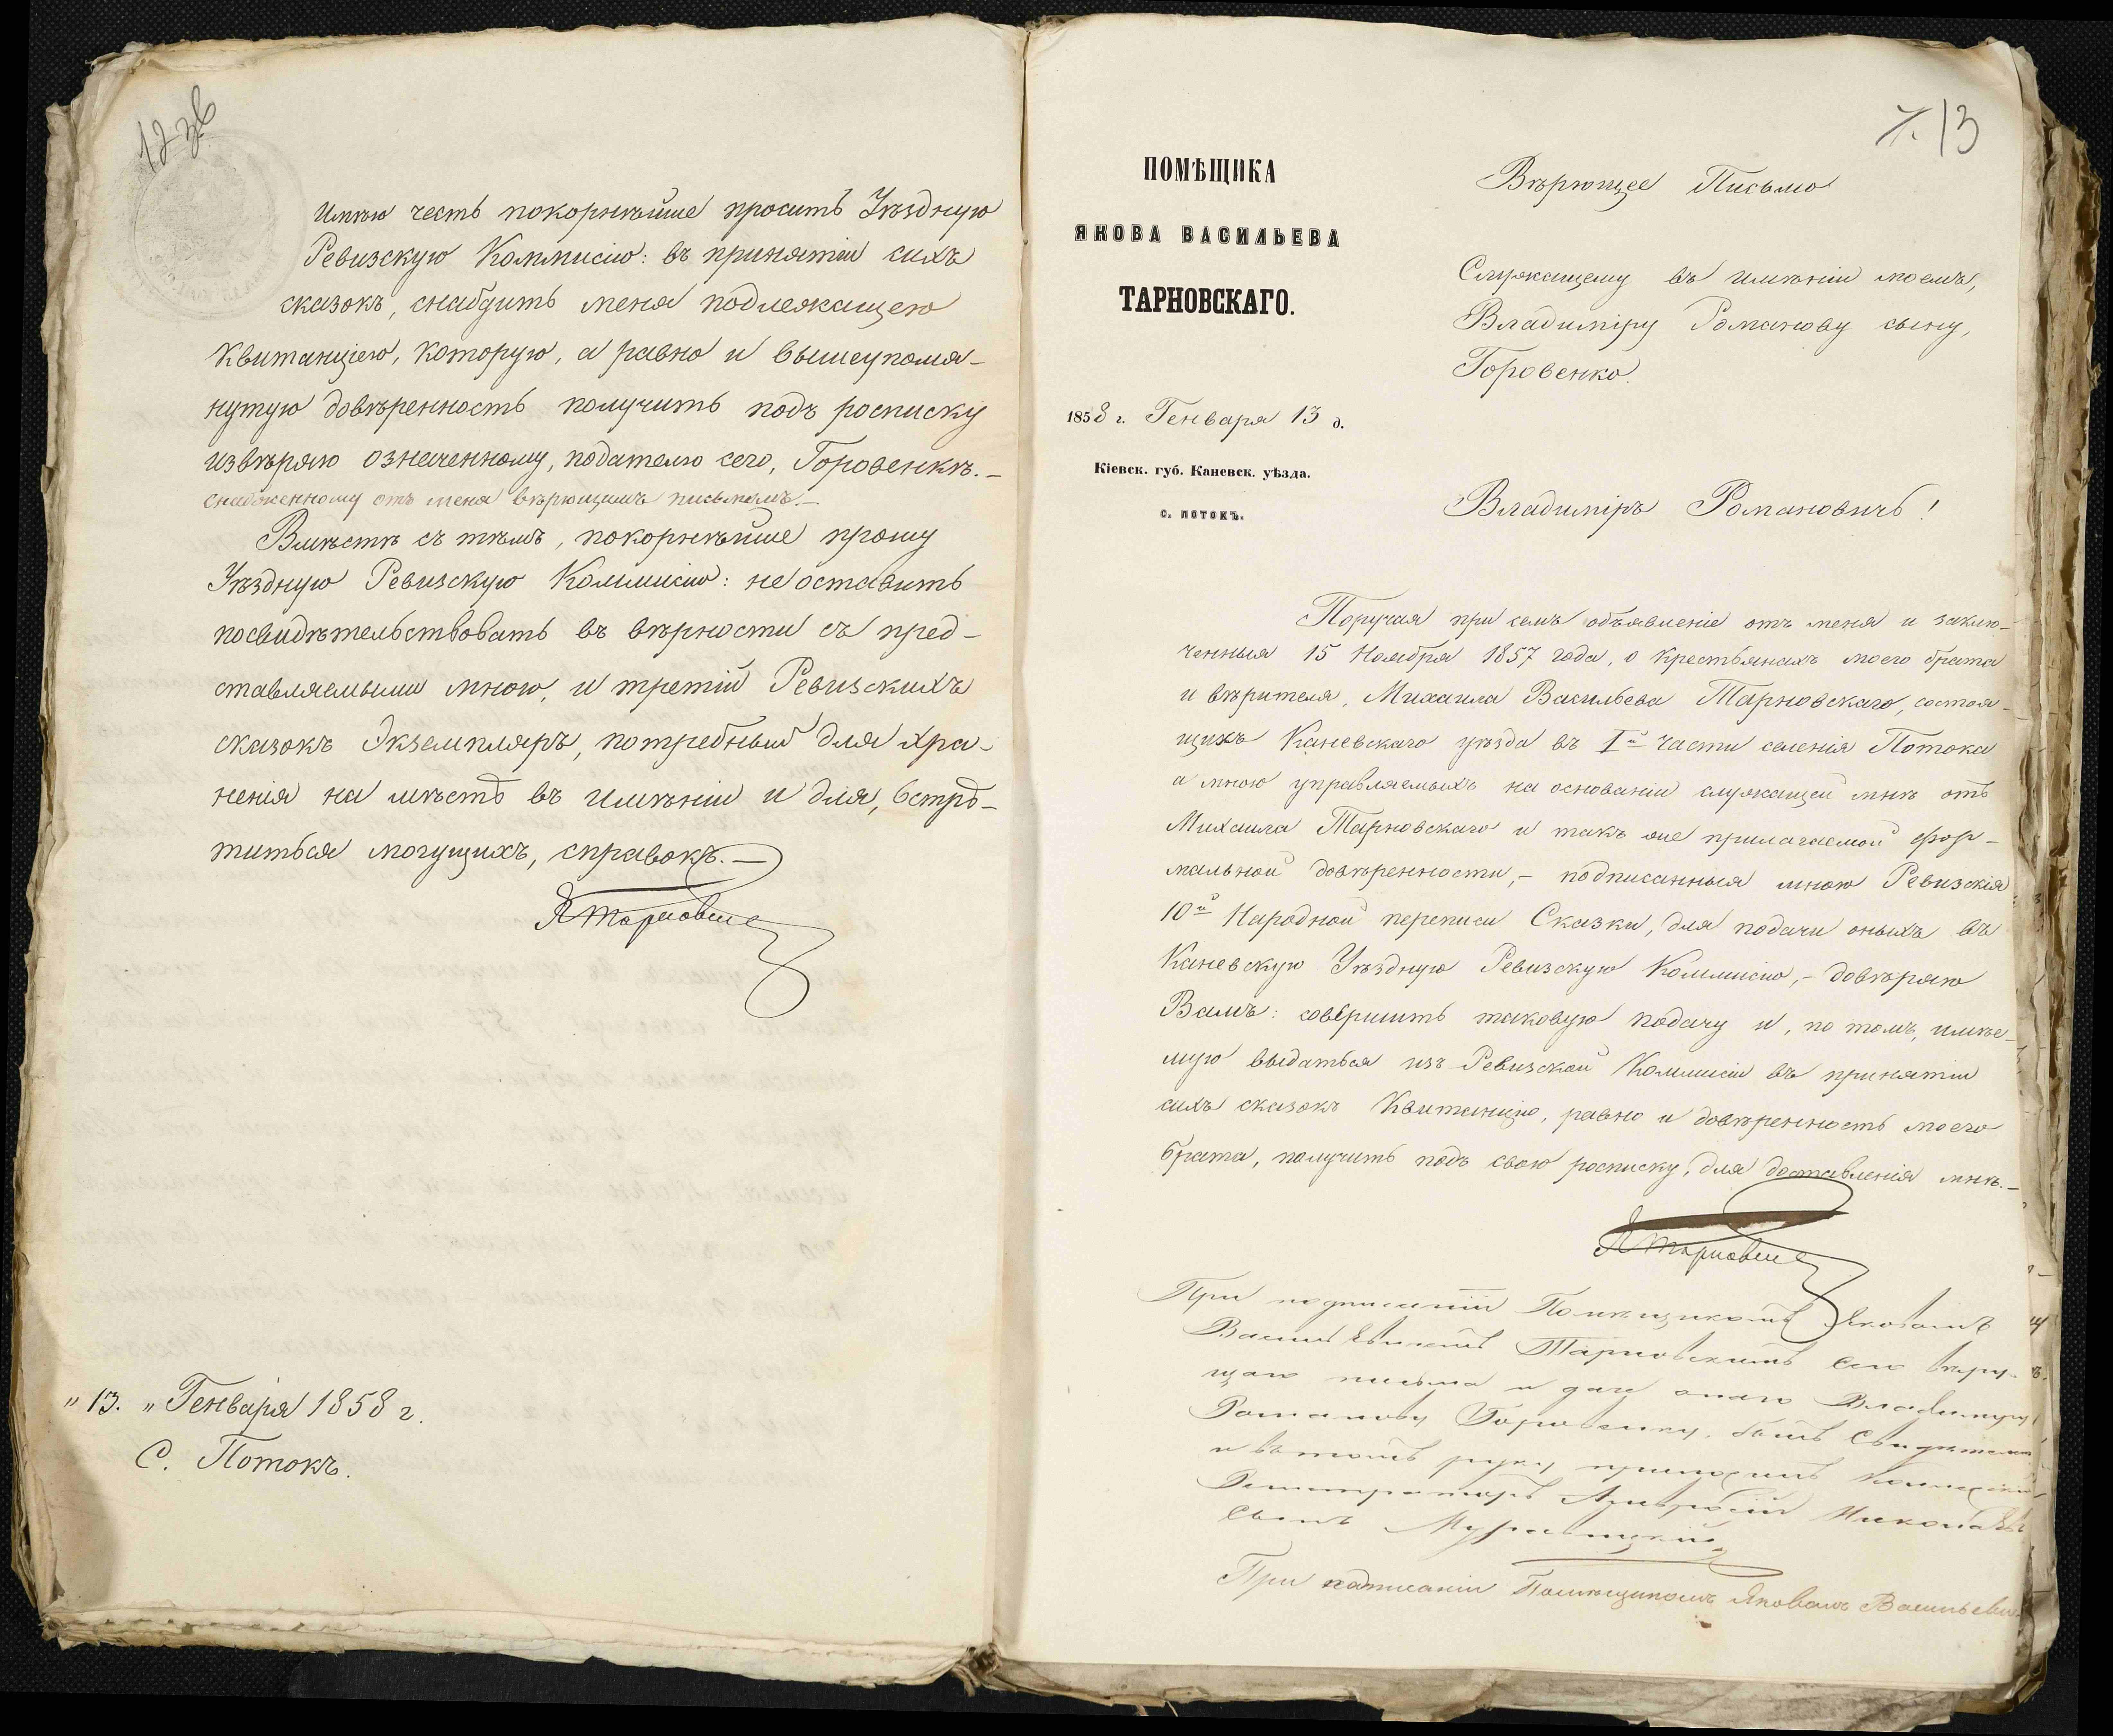 12 зв
Имѣю честь покорнѣйше просить Уѣздную
Ревизскую Коммисію: въ принятіи сихъ
сказокъ, снабдить меня подлежащею
Квитанціею, которую, а равно и вышеупомя-
нутую довѣренность получить подъ росписку
извѣряю означенному, подателю сего, Горовенкѣ.-
снабженному отъ меня вѣрющимъ письмомъ.-
Вмѣстѣ съ тѣмъ, покорнѣйше прошу
Уѣздную Ревизскую Коммисію: не оставить
посвидѣтельствовать въ вѣрности съ пред-
ставляемыми мною, и третій Ревизскихъ
сказокъ Экземпляръ, потребный для хра-
ненія на мѣстѣ въ имѣніи и для, встрѣ-
титься могущихъ, справокъ.-
Я Тарновскій
"13. " Генваря 1858 г.
С. Потокъ.
13
ПОМѢЩИКА
ЯКОВА ВАСИЛЬЕВА
ТАРНОВСКАГО.
1858 г. Генваря 13 д.
Кіевск. губ. Каневск. уѣзда.
С. ПОТОКЪ.
Вѣрющее Письмо
Служащему въ имѣніи моемъ,
Владиміру Романову сыну,
Горовенко.
Владиміръ Романовичъ!
Поручая при семъ объявленіе отъ меня и заклю-
ченныя 15 Ноября 1857 года, о крестьянахъ моего брата
и вѣрителя, Михаила Васильева Тарновскаго, состоя-
щихъ Каневскаго уѣзда въ Iй части селенія Потока
а мною управляемыхъ на основаніи служащей мнѣ отъ
Михаила Тарновскаго и такъ же прилагаемой фор-
мальной довѣренности,- подписанныя мною Ревизскія
10й Народной переписи Сказки, для подачи оныхъ въ
Каневскую Уѣздную Ревизскую Коммисію,- довѣряю
Вамъ: совершить таковую подачу и, по томъ, имѣе-
мую выдаться изъ Ревизской Коммисіи въ принятіи
сихъ сказокъ Квитанцію, равно и довѣренность моего
брата, получить подъ свою росписку, для доставленія мнѣ.-
Я Тарновскій
При подписаніи Помѣщикомъ Яковомъ
Васильевичемъ Тарновскимъ сего вѣрю-
щаго письма и дачи онаго Владиміру
Романову Горовенку, былъ Свидѣтелемъ
и въ томъ руку приложилъ Коллежскій
Регистраторъ Николаевъ
Сынъ
При написаніи Помѣщикомъ Яковомъ Васильевич